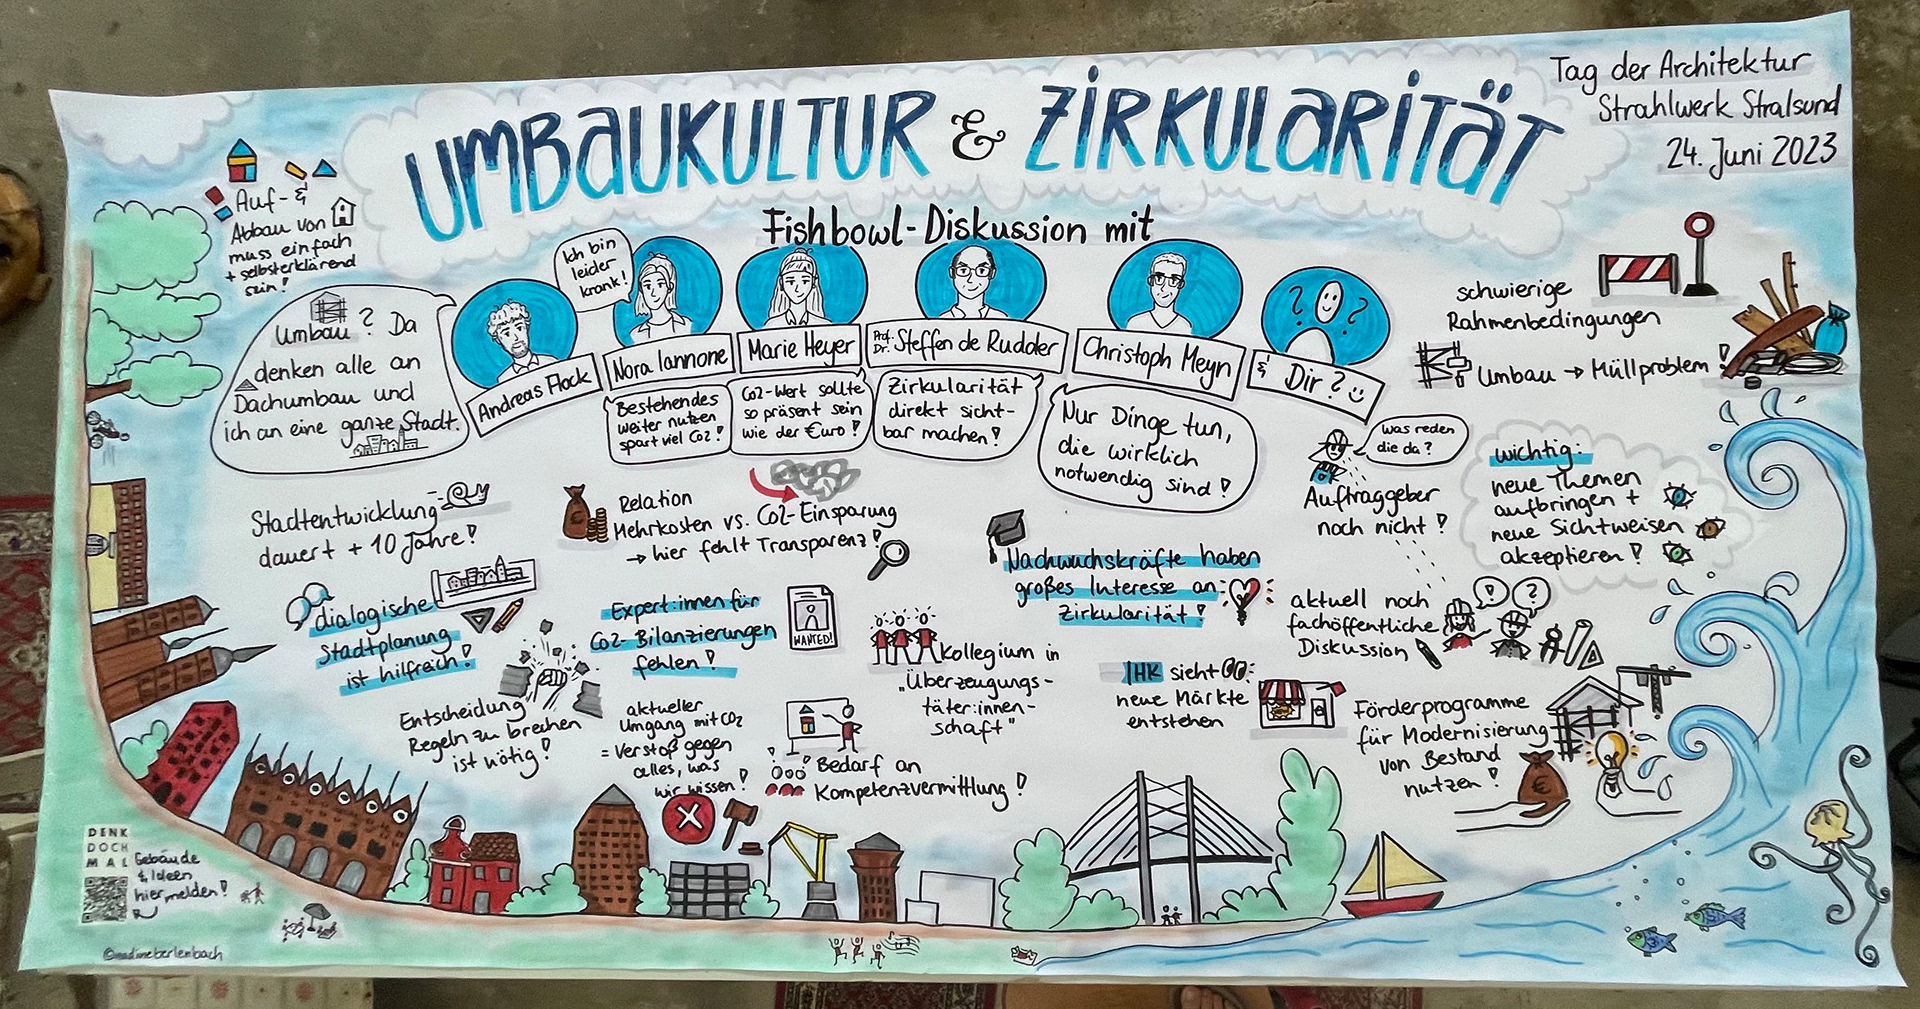 UMBAUKULTUR & ZIRKULARITÄT
Tag der Architektur
Strahlwerk Stralsund
24. Juni 2023
Fishbowl-Diskussion mit
Auf- &
Abbau von
muss einfach
+ selbsterklärend
sein!
Umbau? Da
denken alle an
Dachumbau und
ich an eine ganze Stadt.
Andreas Flock
Ich bin
leider
krank!
Nora Iannone
Bestehendes
weiter nutzen
spart viel Co2!
Marie Heyer
Co2-Wert sollte
so präsent sein
wie der €uro!
Prof.
Dr.
Steffen de Rudder
Zirkularität
direkt sicht-
bar machen!
Christoph Meyn
Nur Dinge tun,
die wirklich
notwendig sind!
? ?
& Dir?
schwierige
Rahmenbedingungen
Umbau → Müllproblem!
was reden
die da?
Auftraggeber
noch nicht!
wichtig:
neue Themen
aufbringen +
neue Sichtweisen
akzeptieren!
Stadtentwicklung
dauert + 10 Jahre!
€
Relation
Mehrkosten vs. Co2-Einsparung
→ hier fehlt Transparenz!
Nachwuchskräfte haben
großes Interesse an
Zirkularität!
dialogische
Stadtplanung
ist hilfreich!
Expert:innen für
Co2-Bilanzierungen
fehlen!
WANTED!
Kollegium in
„Überzeugungs-
täter:innen-
schaft"
aktuell noch
fachöffentliche
Diskussion
! ?
Entscheidung
Regeln zu brechen
ist nötig!
aktueller
Umgang mit CO2
= Verstoß gegen
alles, was
wir wissen!
Bedarf an
Kompetenzvermittlung!
IHK sieht
neue Märkte
entstehen
Förderprogramme
für Modernisierung
von Bestand
nutzen!
€
DENK
DOCH
MAL
Gebäude
& Ideen
hier melden!
©nadineberlenbach